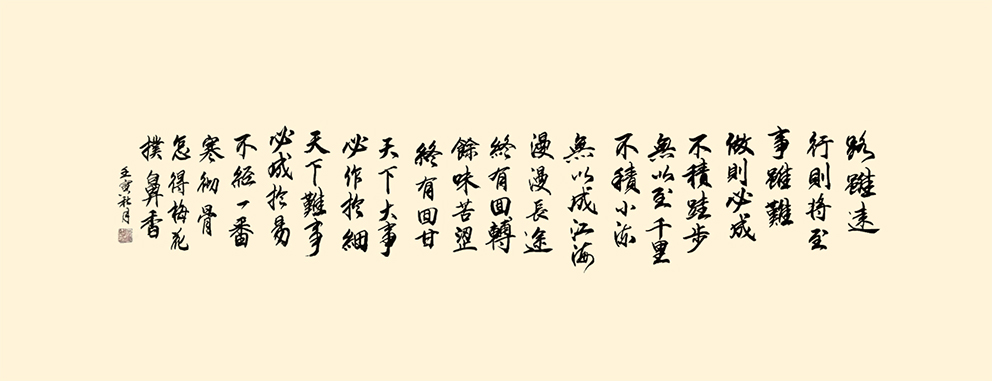 路雖遠
行則將至
事雖難
做則必成
不積跬步
無以至千里
不積小流
無以成江海
漫漫長途
終有回轉
餘味苦澀
終有回甘
天下大事
必作於細
天下難事
必成於易
不經一番
寒徹骨
怎得梅花
撲鼻香
壬寅秋月